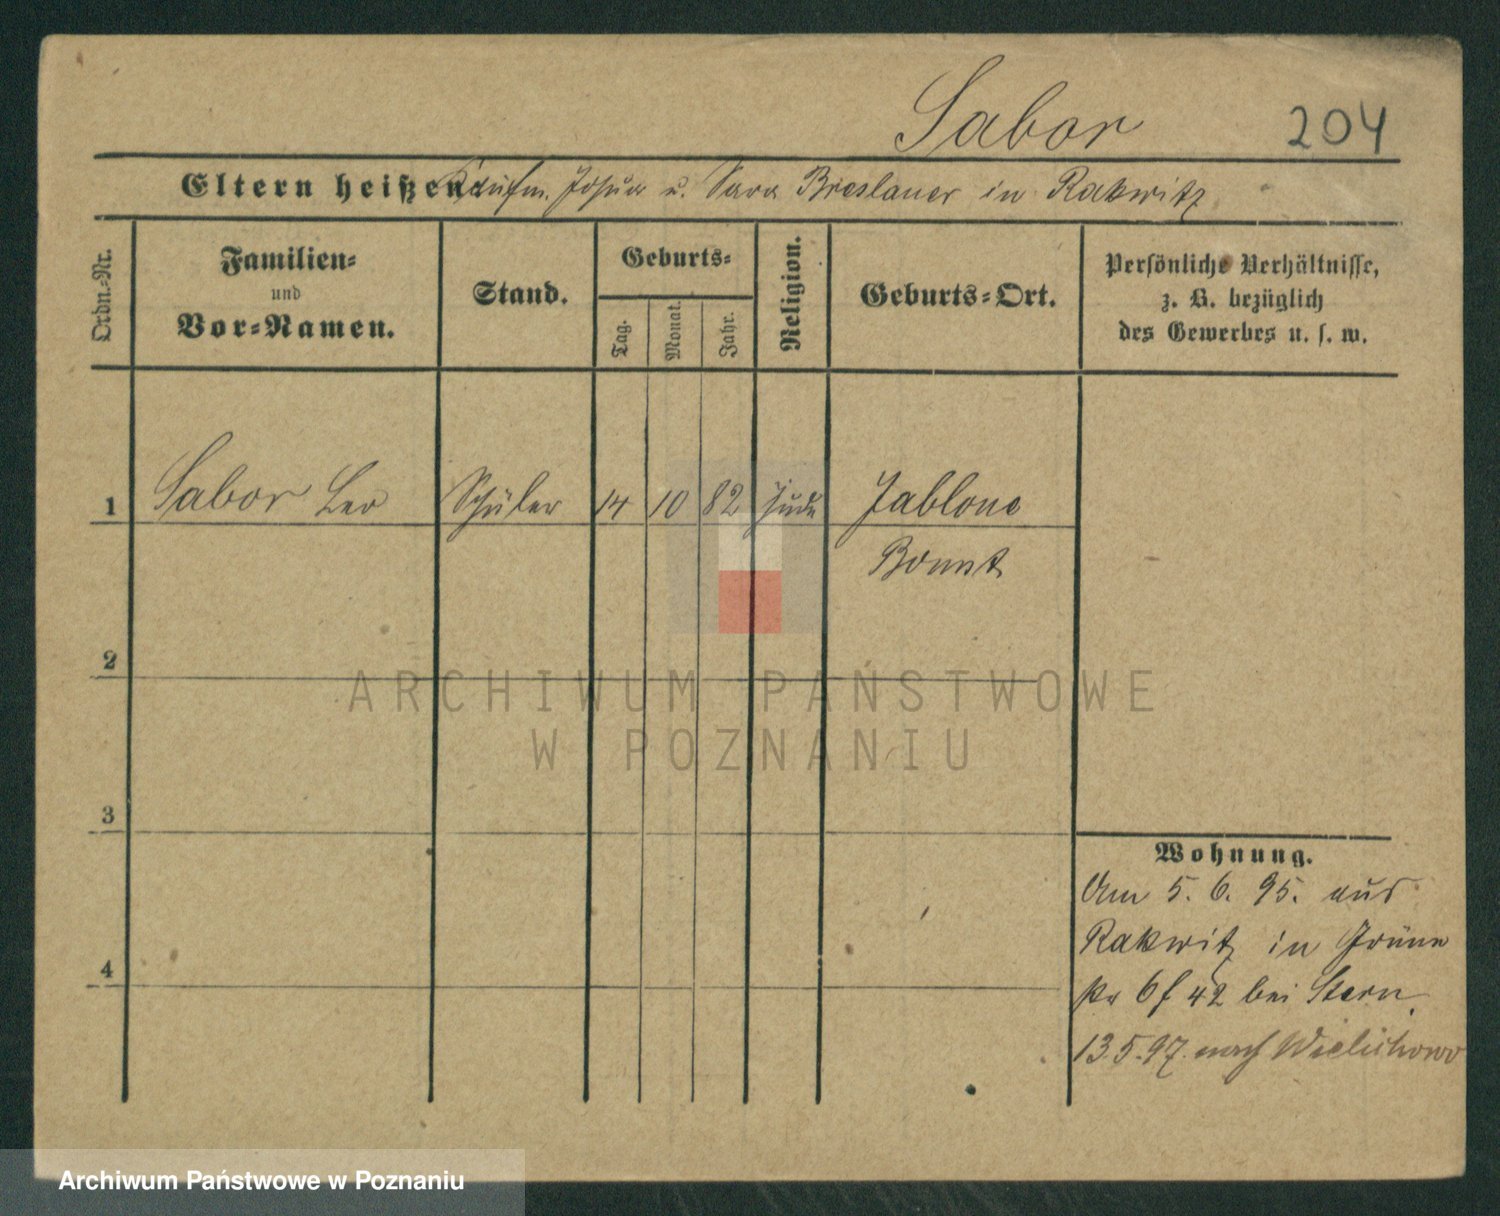 Sabor
204
Eltern heißen: Kaufm. Josua u. Sara Breslauer in Rakwitz
Ordn.-Nr.
Familien-
und
Vor-Namen.
Stand.
Geburts-
Tag.
Monat.
Jahr.
Religion.
Geburts-Ort.
Persönliche Verhältnisse,
z. B. bezüglich
des Gewerbes u. s. w.
1 Sabor Leo Schüler 14 10 82 jude Jablone
Bomst
2
ARCHIWUM PAŃSTWOWE
W POZNANIU
3
Wohnung.
Am 5. 6. 95. aus
Rakwitz in Grüne
4
42 bei Stern
13.5.97. nach Wielichowo
Archiwum Państwowe w Poznaniu